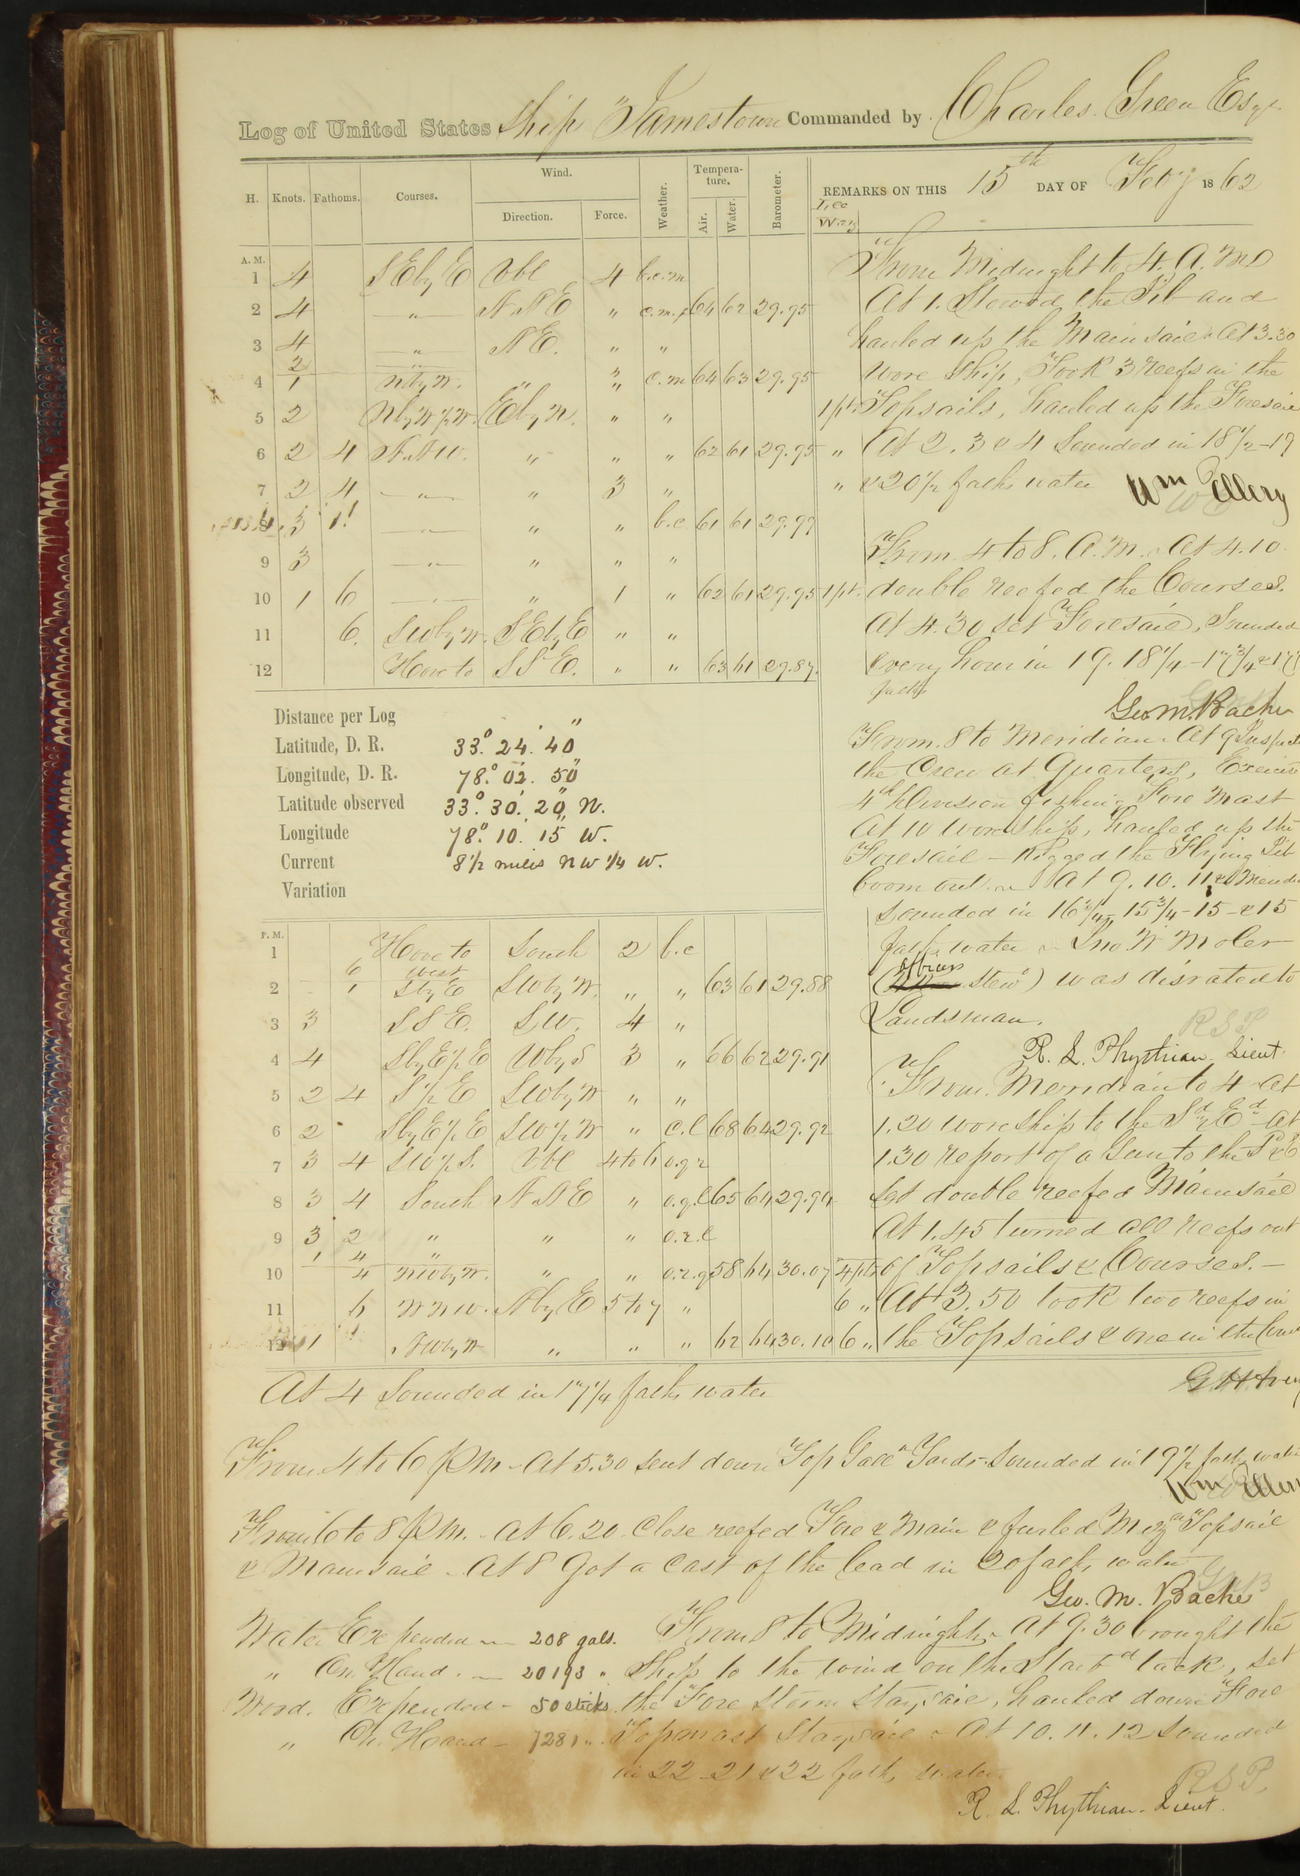 Log of United States Ship "Jamestown" Commanded by Charles Green Esqr
H. Knots. Fathoms. Courses. Wind. Direction. Force. Weather. Temperature. Air. Water. Barometer.
REMARKS ON THIS 15th DAY OF Feby 1862
Lee Way
A. M.
1 4 S E by E Vbl 4 b.c.m
2 4 " N N E " c.m. 64 62 29.95
3 4 " N E. " "
2 "
4 1 N by W. " 3 " c.m 64 63 29.95
5 2 N by W ½ W. E by N. " " 1 pt.
6 2 4 N. N W. " " " 62 61 29.95 "
7 2 4 " " 3 " "
8 3 1 " " " b.c 61 61 29.97
9 3 " " " "
10 1 6 " " 1 " 62 61 29.95 1 pt.
11 6. S W by W. S E by E " "
12 Hove to S S E. " " 63 61 29.87.
From Midnight to 4. A. M.
At 1. Stowed the Jib and
hauled up the Mainsail. At 3.30
wore Ship, Took 3 reefs in the
Topsails, hauled up the Foresail
At 2. 3 & 4 Sounded in 18 1/2 - 19
& 20 1/2 faths water Wm Ellery
From 4 to 8. A. M. At 4.10
double reefed the Courses.
At 4.30 set Foresail, Sounded
every hour in 19. 18 1/4 - 17 3/4 & 17
faths.
Geo. M. Bache
Distance per Log
Latitude, D. R. 33.° 24.' 40"
Longitude, D. R. 78.° 02.' 50"
Latitude observed 33.° 30.' 20" N.
Longitude 78.° 10. 15 W.
Current 8 1/2 miles N W 1/4 W.
Variation
From 8 to Meridian. At 9
the Crew at Quarters,
4th Division fishing Fore Mast
At 10 wore Ship, hauled up the
Foresail - Rigged the Flying Jib
boom out. At 9. 10. 11 &
sounded in 16 3/4 - 15 3/4 - 15 - & 15
faths water Jno W Moler
(Officers Stewd) was disrated to
Landsman.
R. L. Phythian. Lieut.
P. M.
1 Hove to South 2 b.c
6 West
2 1 S by E S W by W. " " 63 61 29.88
3 3 S S E. S W. 4 "
4 4 S by E ½ E W by S 3 " 66 62 29.91
5 2 4 S ½ E S W by W " "
6 2 S by E ½ E S W ½ W " c.l 68 64 29.92
7 3 4 S W ½ S. Vbl 4 to 6 o.q.r
8 3 4 South N N E " o.q.l 65 64 29.94
9 3 2 " " " o.r.l
1 4 "
10 4 N W by W. " " o.r.q 58 64 30.07 4 pts
11 6 W N W. N by E 5 to 7 " 6 "
12 1 N W by W " " " 62 64 30.10 6 "
From Meridian to 4 At
1.20 wore ship to the Sd & Ed At
1.30 report of a Gun to the
Set double reefed Mainsail
At 1.45 turned all reefs out
of Topsails & Courses. -
At 3.50 took two reefs in
the Topsails & one in the
At 4 Sounded in 17 1/4 faths water
From 4 to 6 P. M. At 5.30 sent down Top Gall't Yards. Sounded in 19 1/2 faths water
Wm Ellery
From 6 to 8 P. M. - At 6.20 Close reefed Fore & Main & furled Miz'n Topsail
& Mainsail. At 8 Got a cast of the lead in 20 faths water
Geo. M. Bache
Water Expended 208 gals. From 8 to Midnight. At 9.30 brought the
" On Hand. 20193 " Ship to the wind on the Starbd tack, set
Wood. Expended - 50 sticks the Fore Storm Staysail, hauled down Fore
" On Hand - 7281 " Topmast Staysail - At 10. 11. 12 Sounded
in 22 - 21 & 22 faths water
R. L. Phythian. Lieut.